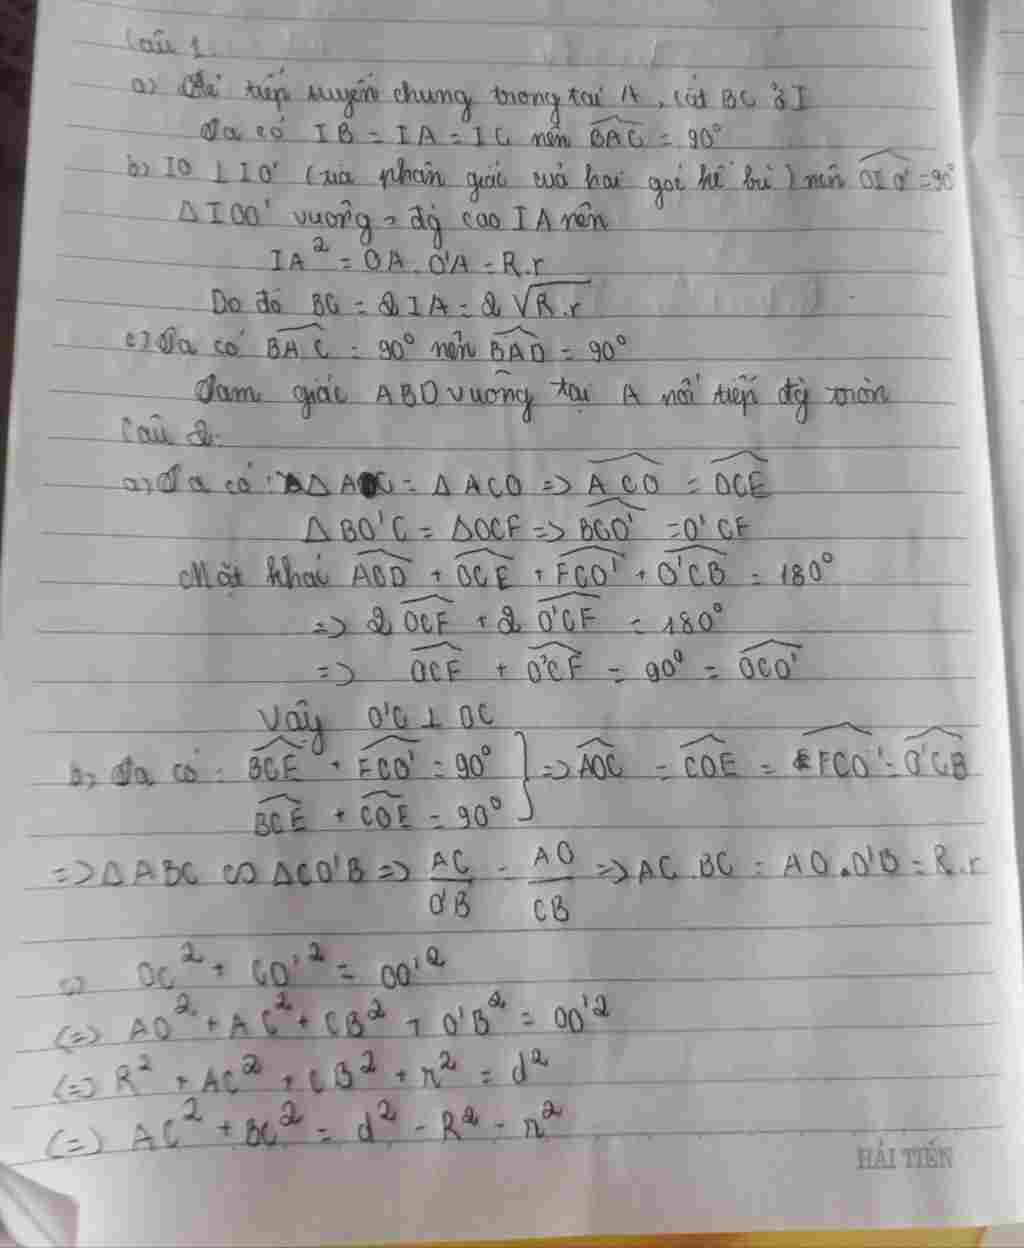 Câu 1.
a) Kẻ tiếp tuyến chung trong tại A, cắt BC ở I
Ta có IB = IA = IC nên BAC = 90°
b) IO ⊥ IO' (tia phân giác của hai góc kề bù) nên OIO' = 90°
Δ IOO' vuông, đg cao IA nên
IA² = OA . O'A = R.r
Do đó BC = 2 IA = 2 √R.r
c) Ta có BAC = 90° nên BAD = 90°
Tam giác ABD vuông tại A nối tiếp đg tròn
Câu 2.
a, Ta có : Δ AOC = Δ ACO => ACO = OCE
Δ BO'C = ΔOCF => BCO' = O'CF
Mặt khác ACO + OCE + FCO' + O'CB = 180°
=> 2 OCF + 2 O'CF = 180°
=> OCF + O'CF = 90° = OCO'
Vậy O'C ⊥ OC
b, Ta có : BCE + FCO' = 90° } => AOC = COE = FCO' = O'CB
BCE + COE = 90°
=> Δ ABC ∽ ΔCO'B => AC/O'B = AO/CB => AC . BC = AO . O'B = R.r
c) OC² + CO'² = OO'²
(=) AO² + AC² + CB² + O'B² = OO'²
(=) R² + AC² + CB² + r² = d²
(=) AC² + BC² = d² - R² - r²
HẢI TIẾN